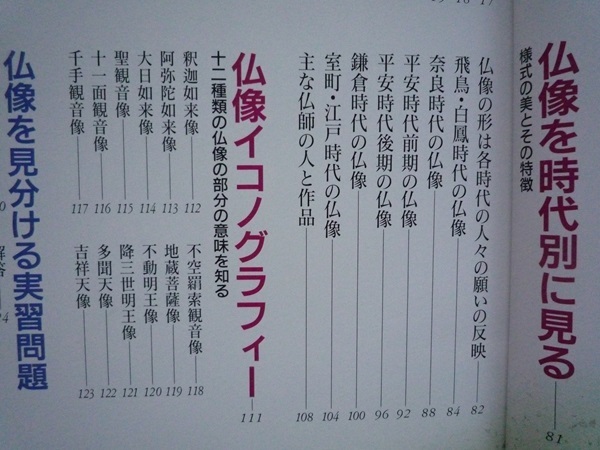 仏像を時代別に見る——81
様式の美とその特徴
仏像の形は各時代の人々の願いの反映——82
飛鳥・白鳳時代の仏像——84
奈良時代の仏像——88
平安時代前期の仏像——92
平安時代後期の仏像——96
鎌倉時代の仏像——100
室町・江戸時代の仏像——104
主な仏師の人と作品——108
仏像イコノグラフィー——111
十二種類の仏像の部分の意味を知る
釈迦如来像——112
阿弥陀如来像——113
大日如来像——114
聖観音像——115
十一面観音像——116
千手観音像——117
不空羂索観音像——118
地蔵菩薩像——119
不動明王像——120
降三世明王像——121
多聞天像——122
吉祥天像——123
仏像を見分ける実習問題